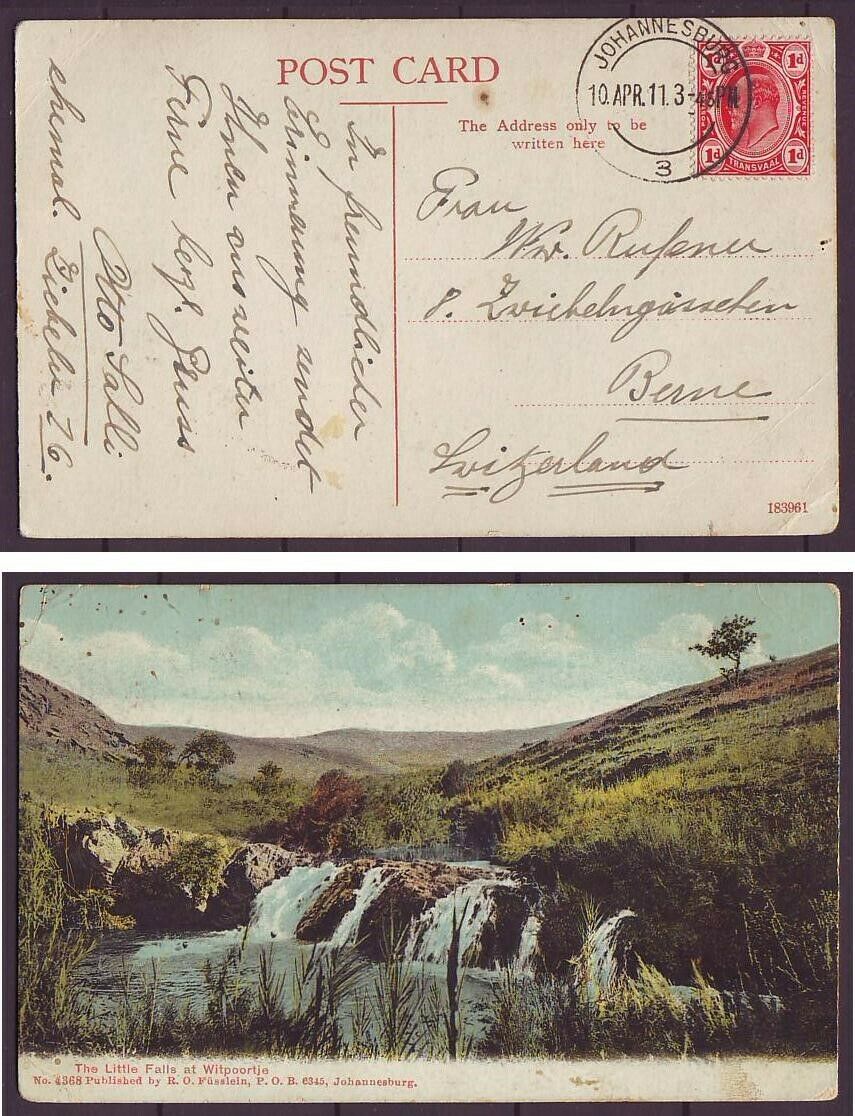 POST CARD
JOHANNESBURG
10.APR.11.3-45PM
3
1d 1d
POSTAGE
REVENUE
1d TRANSVAAL 1d
The Address only to be
written here
In freundlicher
Erinnerung sendet
Ihnen aus weiter
Ferne herzl. Gruss
Otto Salli
ehemal.
Frau
Ww. Rufener
8. Zwiebelngässchen
Berne
Switzerland
183961
The Little Falls at Witpoortje
No. 4368 Published by R. O. Füsslein, P. O. B. 6345, Johannesburg.